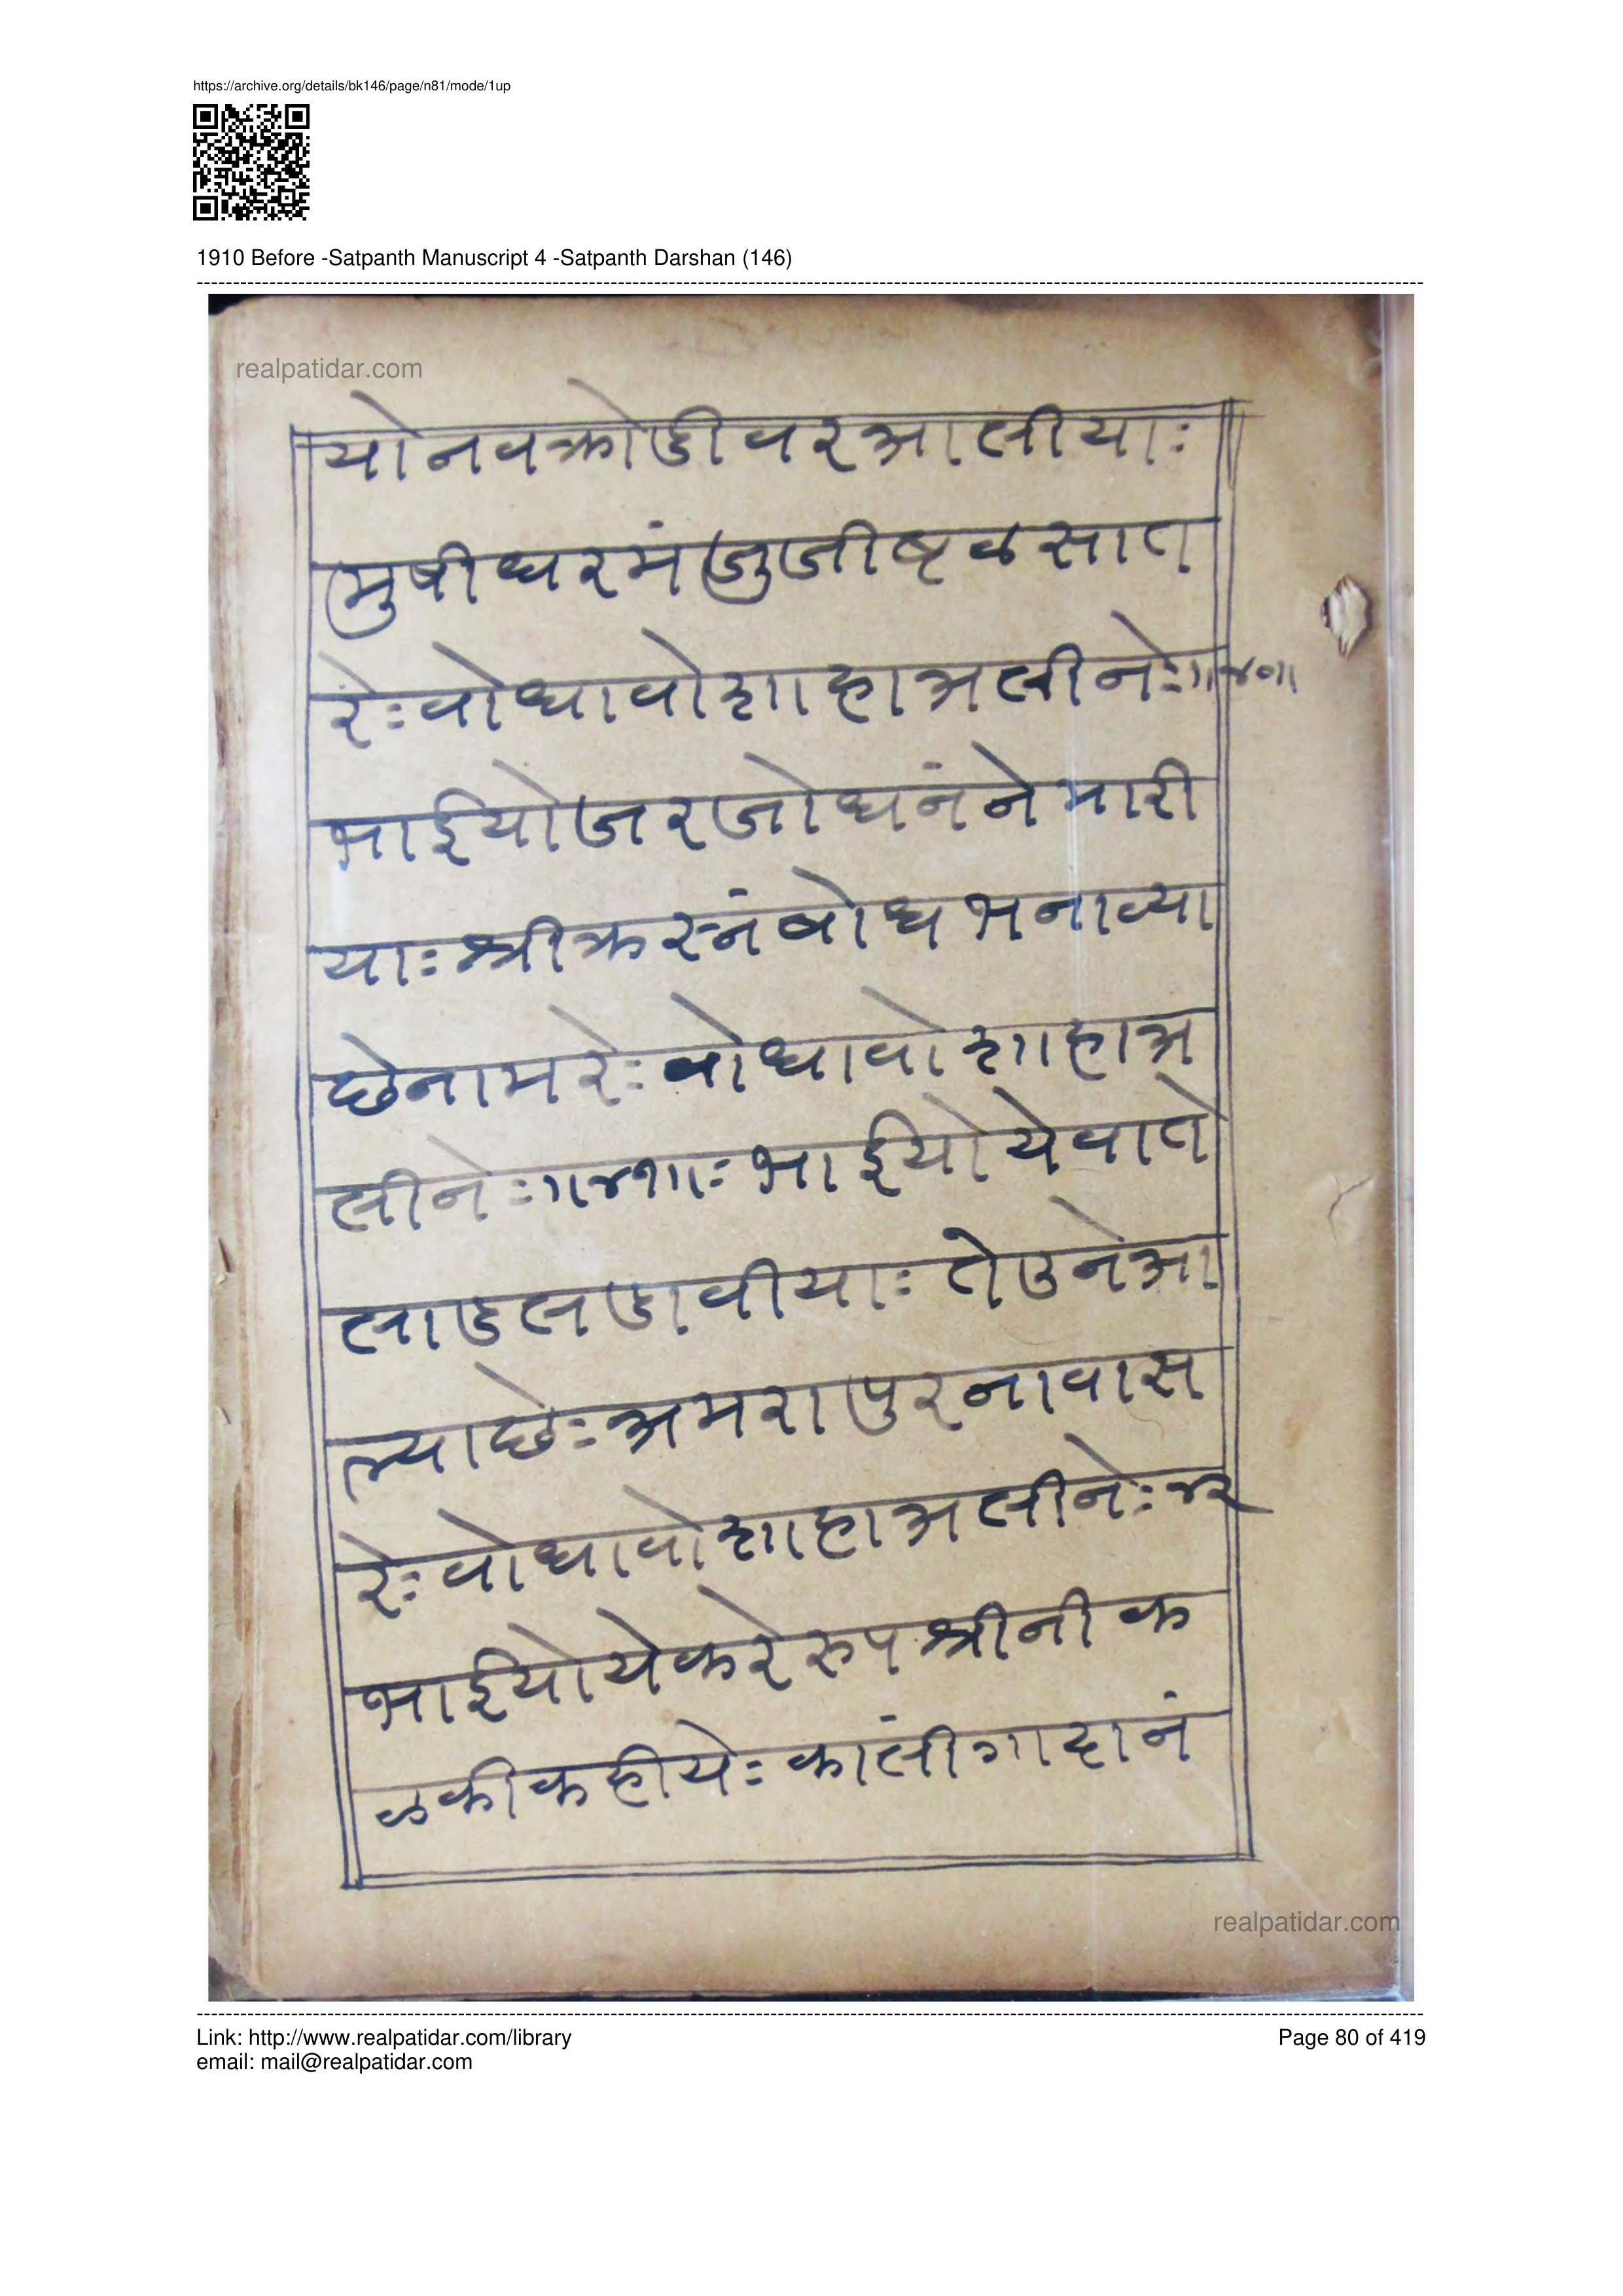 https://archive.org/details/bk146/page/n81/mode/1up
1910 Before -Satpanth Manuscript 4 -Satpanth Darshan (146)
realpatidar.com
योनवक्रोडीवरआलीयाः
मुषीधरमंजुजीष्टळसात
रेःवोधावोशाहाअलीनेः॥४०॥
भाईयोजरजोधनंनेमारी
याःश्रीक्रस्नंबोधभनाव्या
छेनामरेःवोधावोशाहाअ
लीनेः॥४१॥ःभाईयोयेवाते
लाडलडावीयाःतेउनेआ
ल्याछेःअमरापुरनावास
रेःवोधावोशाहाअलीनेः४२
भाईयोयेकरेरुपश्रीनीक
ळकीकहीयेःकालींगादानं
realpatidar.com
Link: http://www.realpatidar.com/library
Page 80 of 419
email: mail@realpatidar.com